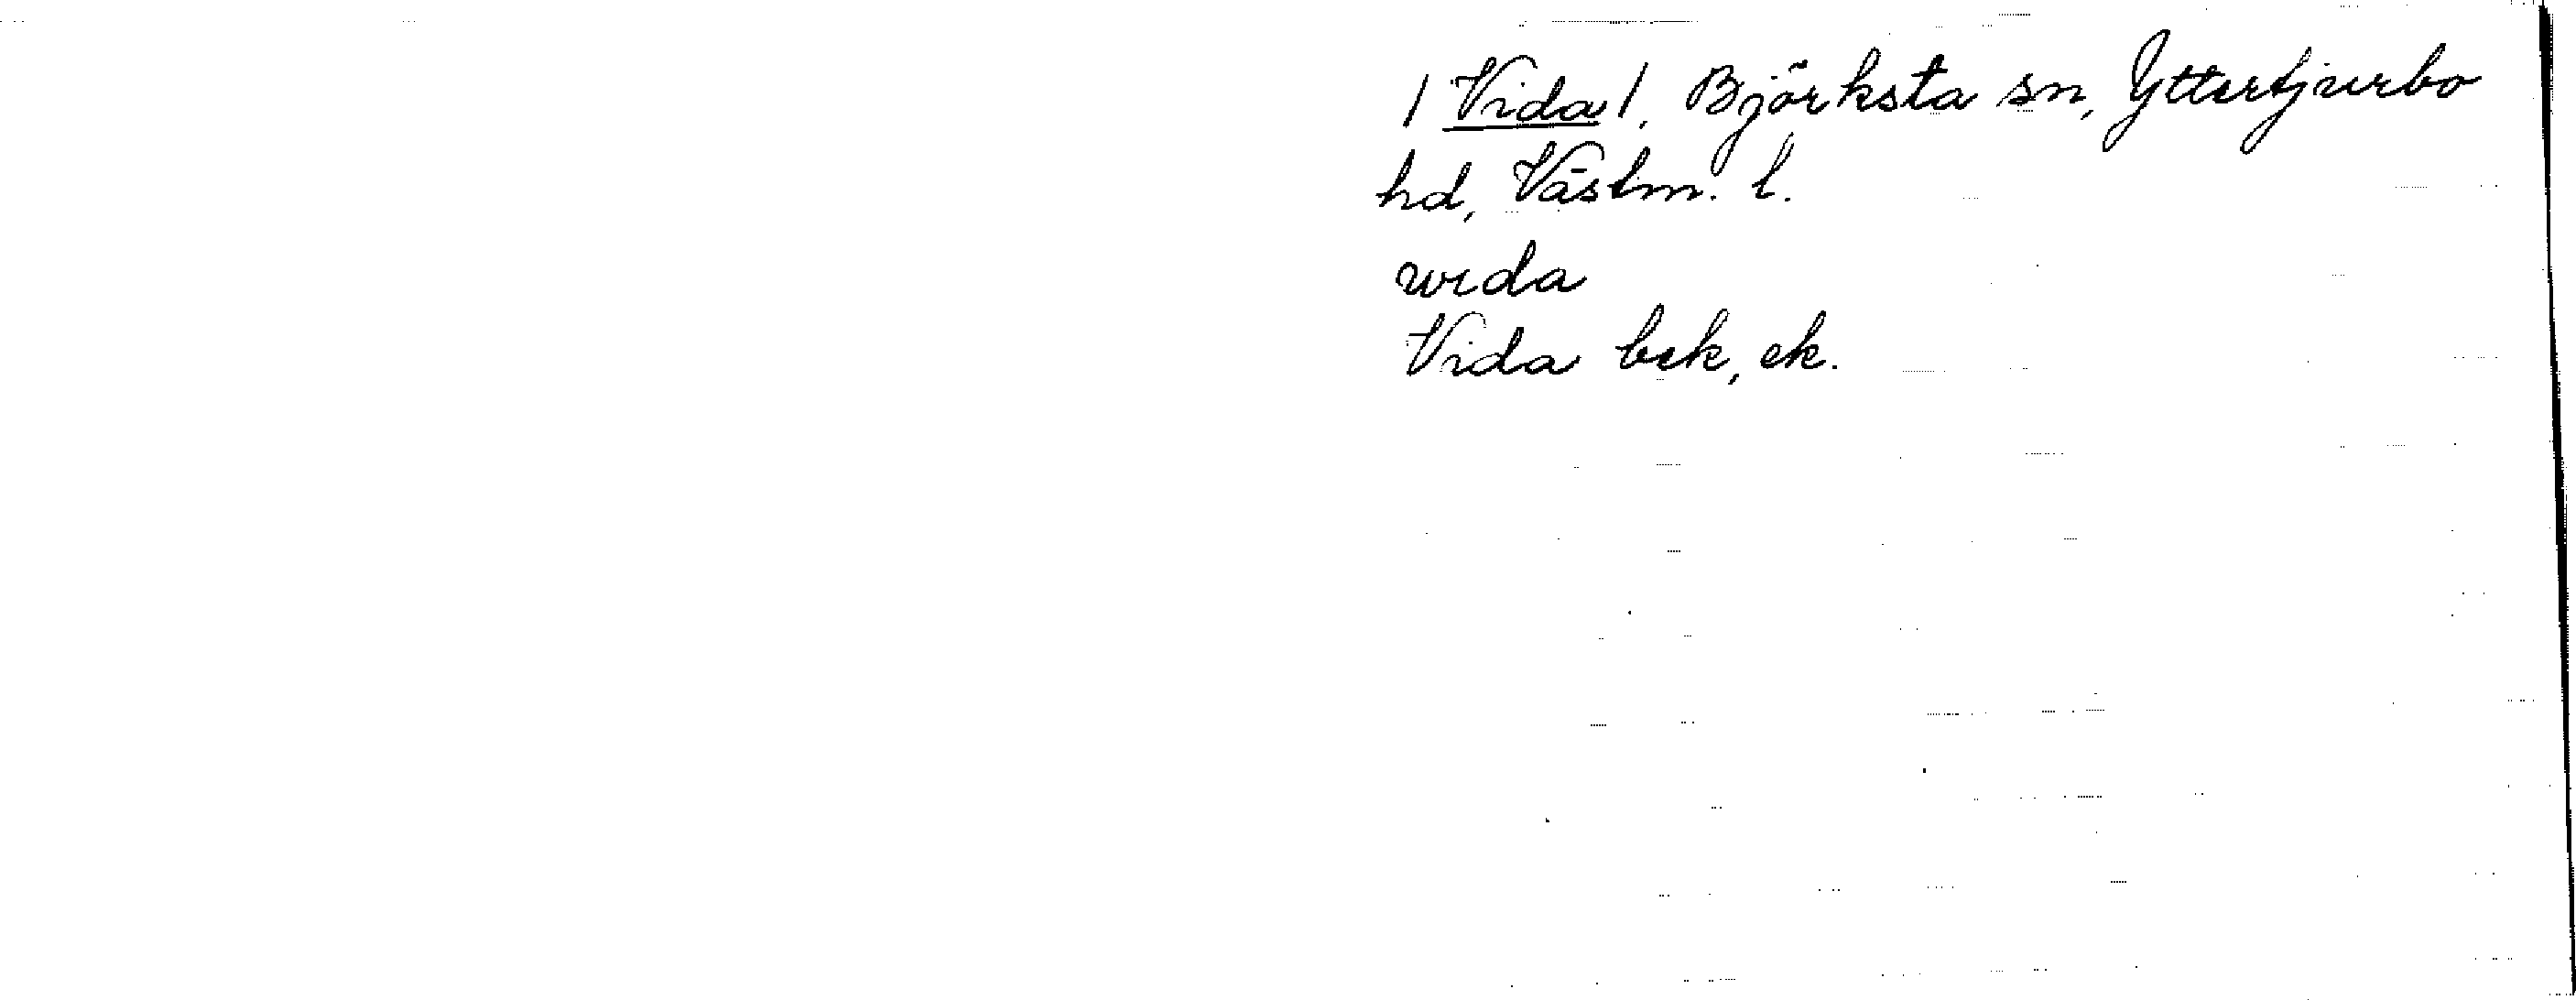 /Vida/, Björksta sn, Yttertjurbo
hd, Västm. l.
wida
Vida bek, ek.